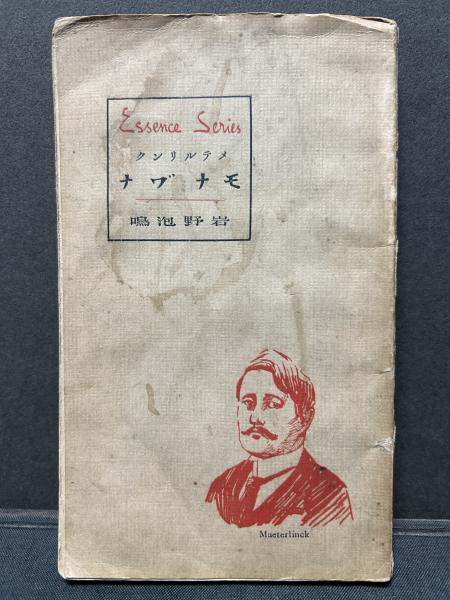 Essence Series
メテルリンク
モナヷナ
岩野泡鳴
Maeterlinck